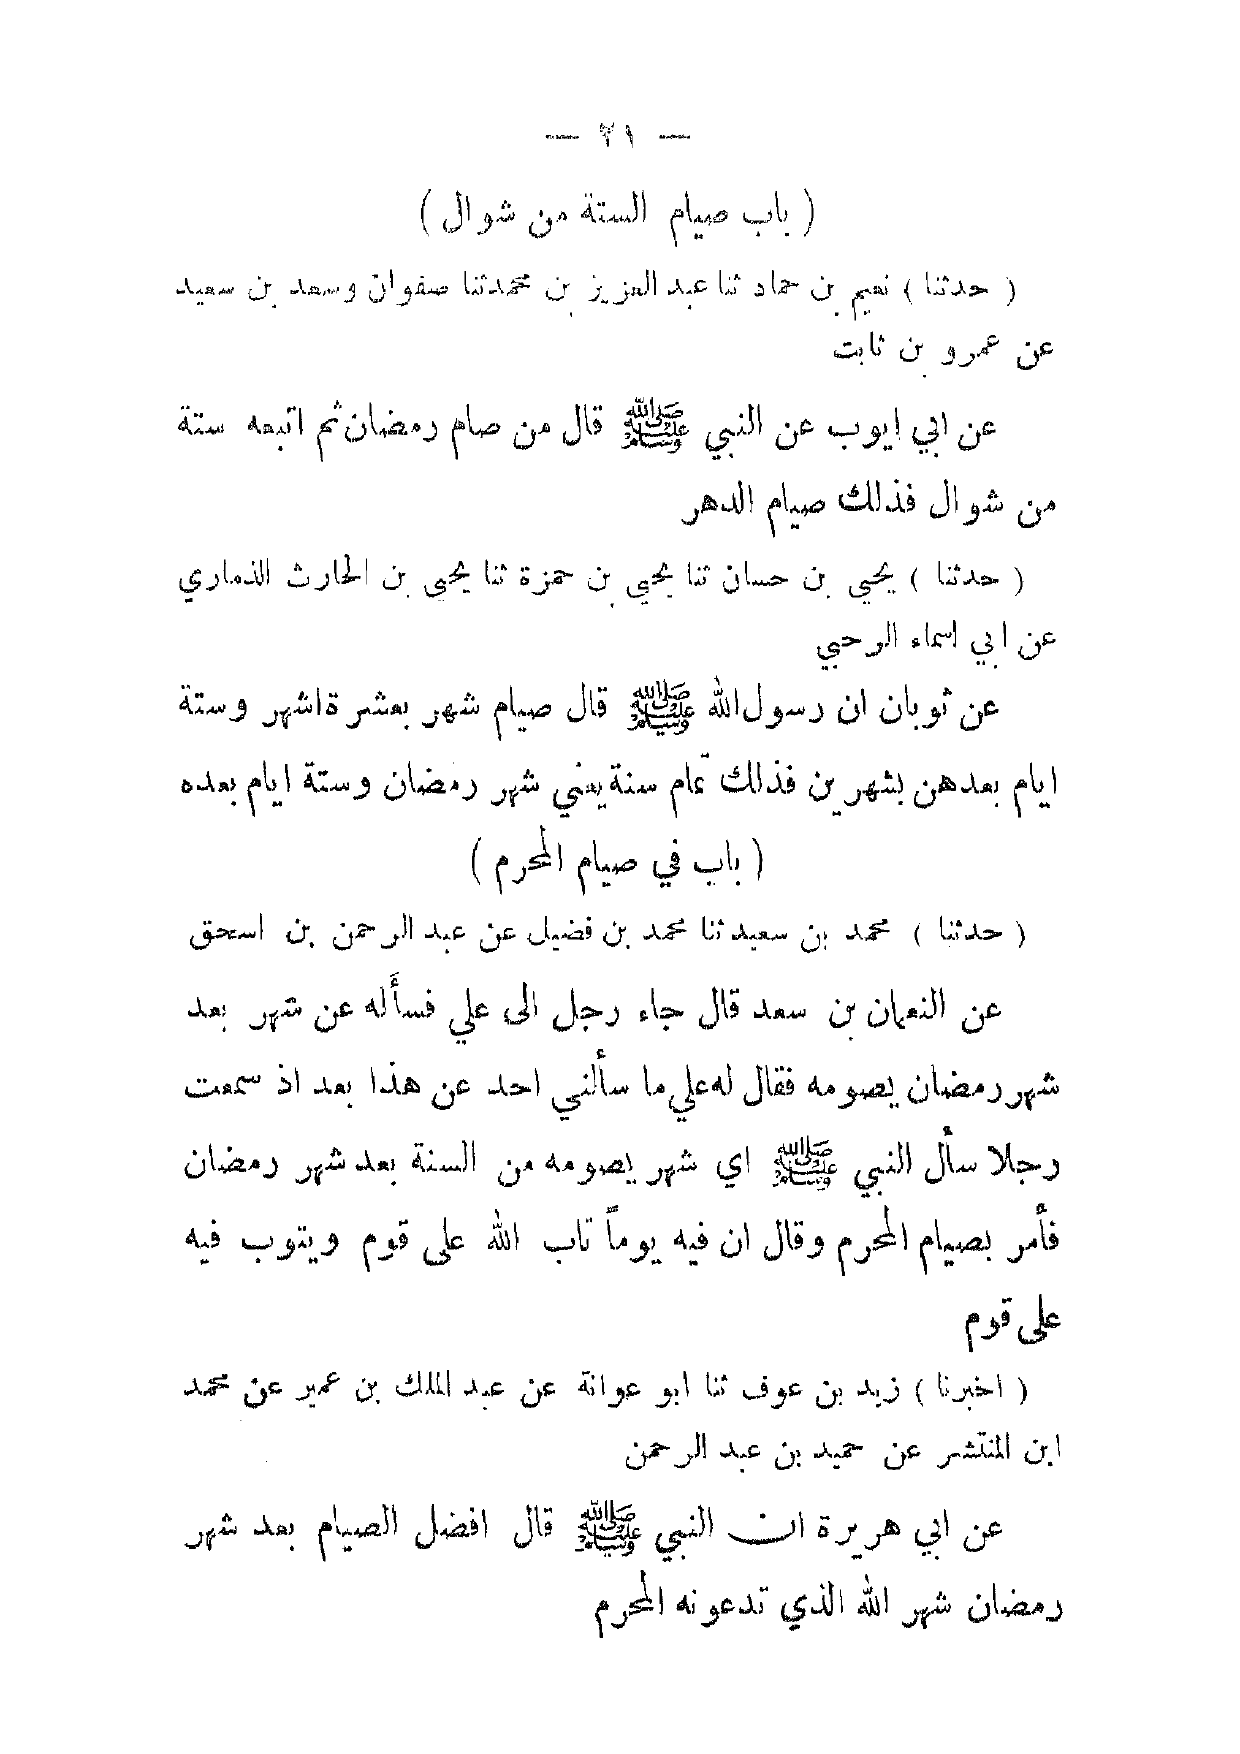 — ٢١ —
( باب صيام الستة من شوال )
( حدثنا ) نعيم بن حماد ثنا عبد العزيز بن محمدثنا صفوان وسعد بن سعيد
عن عمرو بن ثابت
عن ابي ايوب عن النبي ﷺ قال من صام رمضان ثم اتبعه ستة
من شوال فذلك صيام الدهر
( حدثنا ) يحيى بن حسان ثنا يحيى بن حمزة ثنا يحيى بن الحارث الذماري
عن ابي اسماء الرحبي
عن ثوبان ان رسول الله ﷺ قال صيام شهر بعشرة اشهر وستة
ايام بعدهن بشهرين فذلك تمام سنة يعني شهر رمضان وستة ايام بعده
( باب في صيام المحرم )
( حدثنا ) محمد بن سعيد ثنا محمد بن فضيل عن عبد الرحمن بن اسحق
عن النعمان بن سعد قال جاء رجل الى علي فسأله عن شهر بعد
شهر رمضان يصومه فقال له علي ما سألني احد عن هذا بعد اذ سمعت
رجلا سأل النبي ﷺ اي شهر يصومه من السنة بعد شهر رمضان
فأمر بصيام المحرم وقال ان فيه يوماً تاب الله على قوم ويتوب فيه
على قوم
( اخبرنا ) زيد بن عوف ثنا ابو عوانة عن عبد الملك بن عمير عن محمد
ابن المنتشر عن حميد بن عبد الرحمن
عن ابي هريرة ان النبي ﷺ قال افضل الصيام بعد شهر
رمضان شهر الله الذي تدعونه المحرم